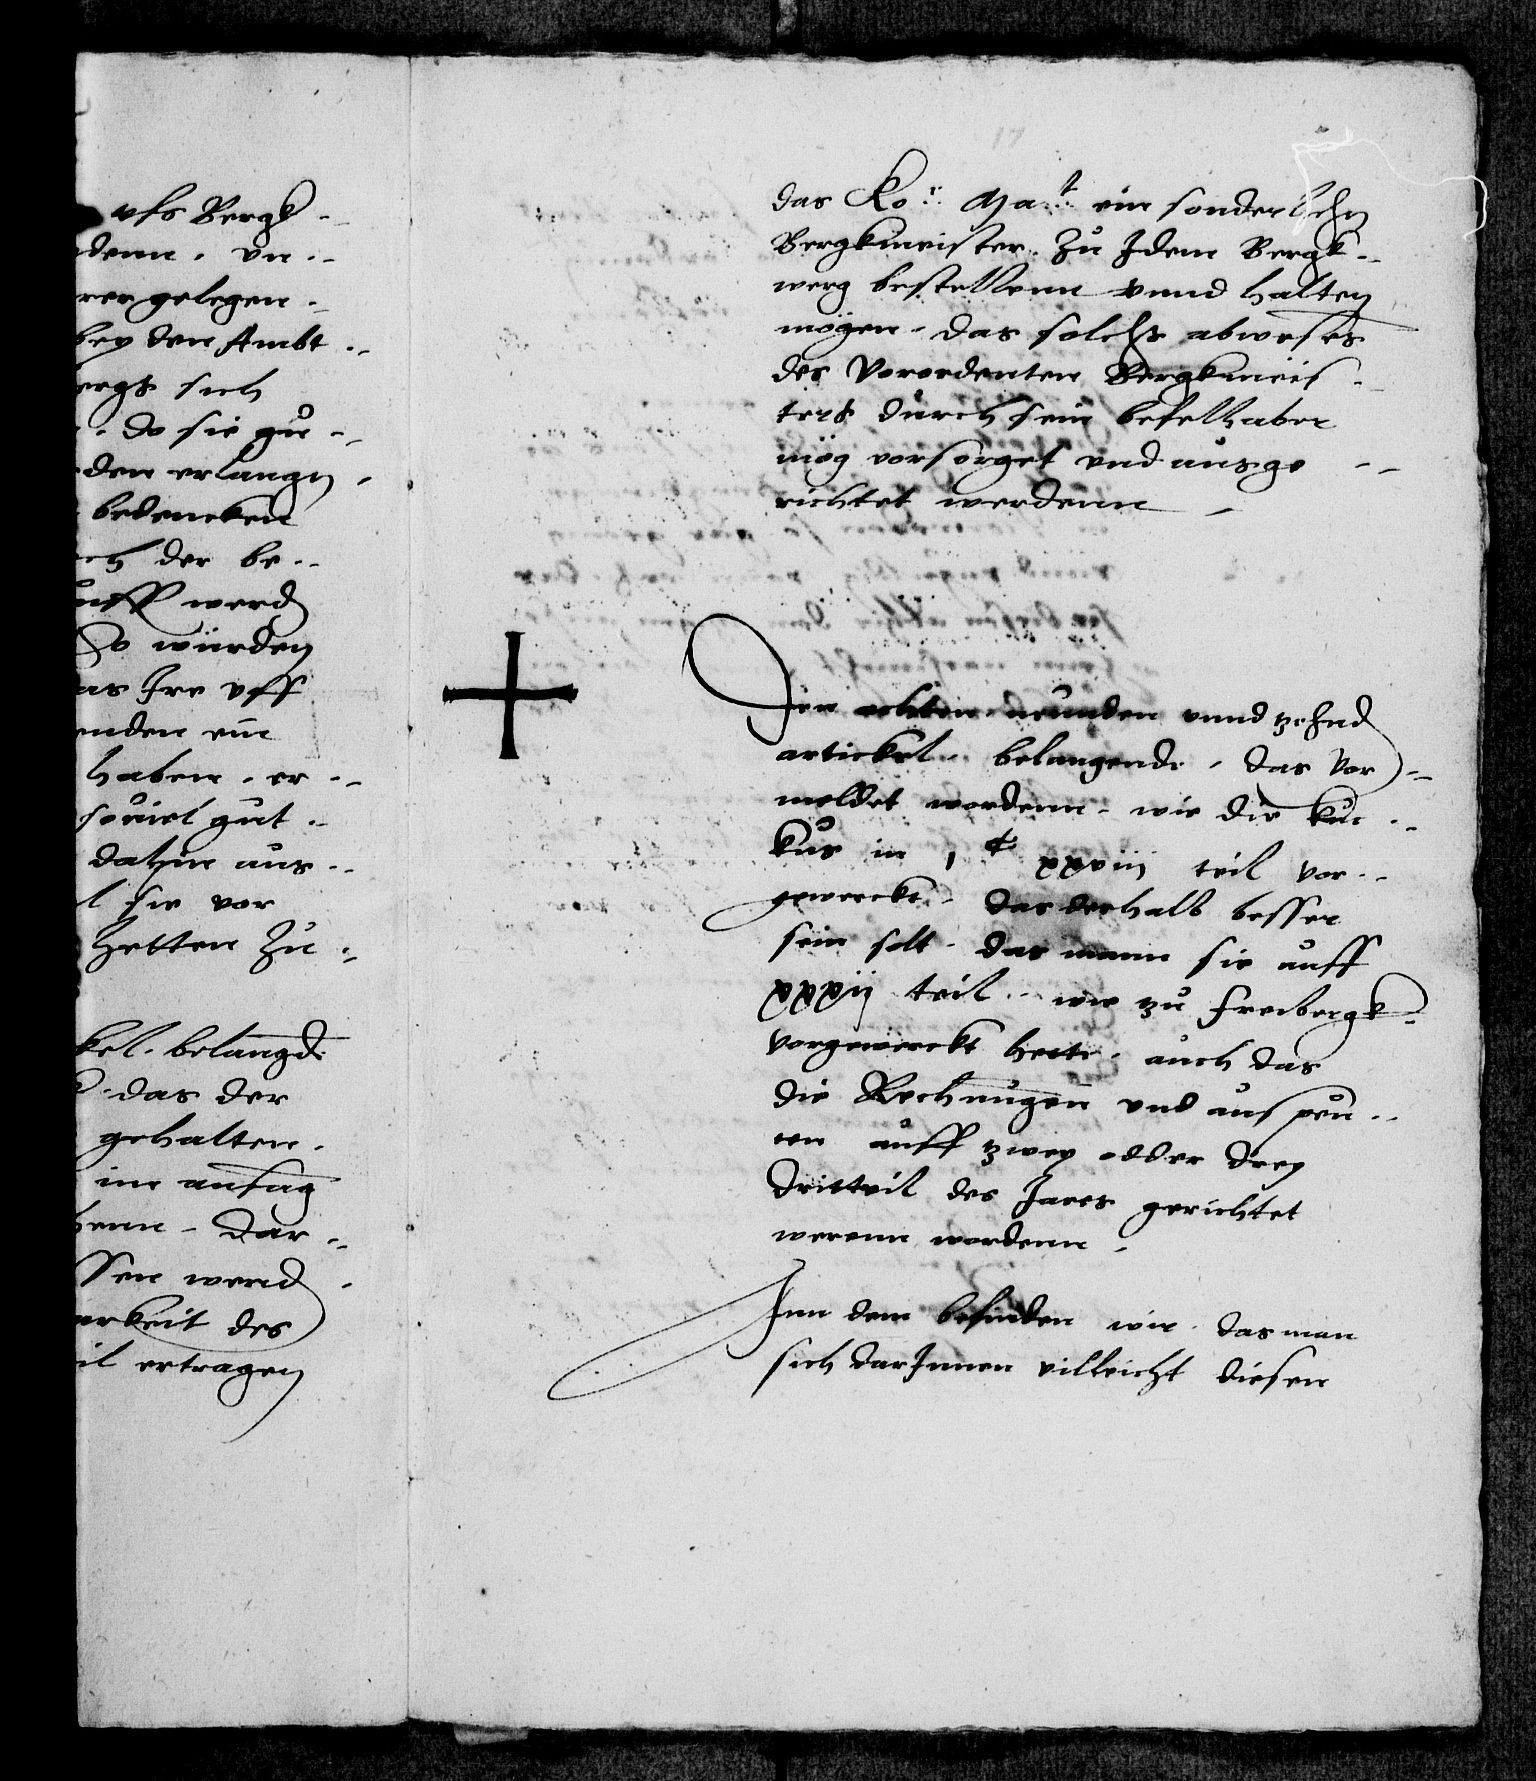 vfs Bergk -
denn . vn ..
rer gelegen -
bey den Ambt ..
ergk sich
. do sie gu -
den erlangn .
bedencken
ch der be ..
auff werd
So würden
as Ire vff
enden ein
haben . er ..
souiel gut ..
dahin aus ..
l sie vor
hetten Zu .
kel . belangd
das der
gehalten .
im anfag
henn - dar ..
ssen werd
arkeit des
il ertragen
das Ko: Mat: ein sonderlichn
Bergkmeister . Zu Idem Bergk ..
werg bestellenn vnnd halten
mögen . das solchs abweses
des Vorordenten Bergkmeis -
ters durch sein befelhaber
mög vorsorget vnd ausge --
richtet werdenn -
Den achten neunden vnnd zehnd
artickel . belangende . das vor ..
meldet wordenn - wie die kuc ..
kus in 1 C xxviij teil vor ..
gewerckt . das deshalb besser
sein solt . das mann sie auff
xxxij teil . wie zu Freibergk .
vorgewerckt hette . auch das
die Rechnungen vnd auspeu ..
ten auff zwey odder drey
dritteil des Jares gerichtet
werenn wordenn .
Inn dem befinden wir das man
sich darInnen villeicht diesen